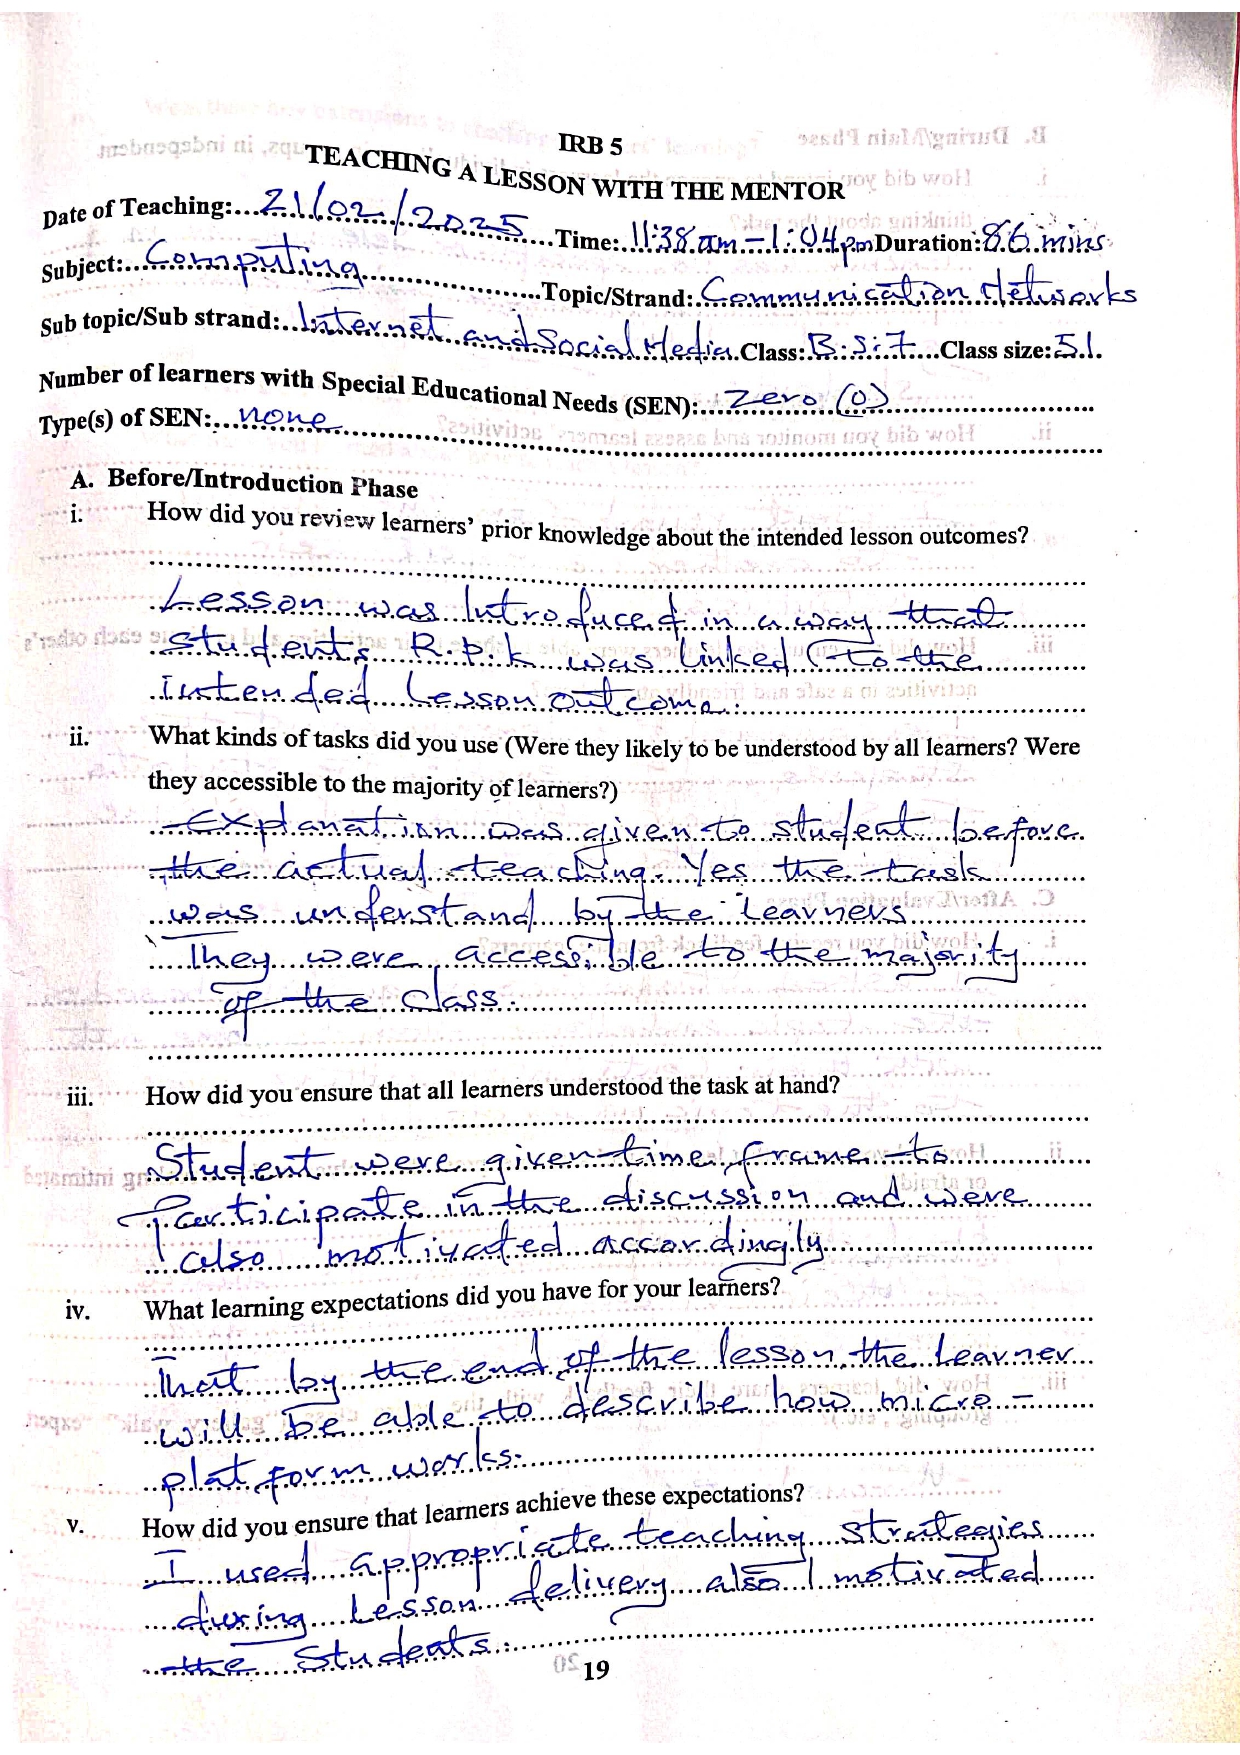 IRB 5
TEACHING A LESSON WITH THE MENTOR
Date of Teaching:...21/02/2025...Time:..11:38am-1:04pm Duration:86 mins
Subject:..Computing...Topic/Strand:.Communication Networks
Sub topic/Sub strand:..Internet and Social Media.Class:B.S.7...Class size:51.
Number of learners with Special Educational Needs (SEN):...Zero (0)
Type(s) of SEN:...none
A. Before/Introduction Phase
i. How did you review learners' prior knowledge about the intended lesson outcomes?
Lesson was Introduced in a way that
students R.P.K was linked to the
Intended Lesson outcome.
ii. What kinds of tasks did you use (Were they likely to be understood by all learners? Were
they accessible to the majority of learners?)
Explanation was given to student before
the actual teaching. Yes the task
was understand by the learners
They were accessible to the majority
of the class.
iii. How did you ensure that all learners understood the task at hand?
Student were given time frame to
Participate in the discussion and were
also motivated accordingly
iv. What learning expectations did you have for your learners?
That by the end of the lesson, the Learner
will be able to describe how micro-
platform works.
v. How did you ensure that learners achieve these expectations?
I used appropriate teaching strategies
during Lesson delivery also I motivated
the Students.
19